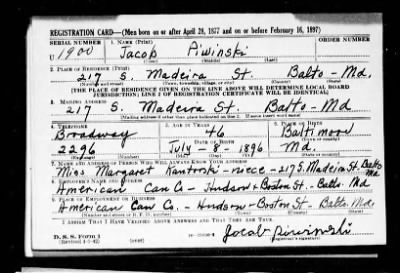 REGISTRATION CARD—(Men born on or after April 28, 1877 and on or before February 16, 1897)
SERIAL NUMBER 1. NAME (Print) ORDER NUMBER
U 1900 Jacob Piwinski
(First) (Middle) (Last)
2. PLACE OF RESIDENCE (Print)
217 S. Madeira St. Balto - Md.
(Number and street) (Town, township, village, or city) (County) (State)
[THE PLACE OF RESIDENCE GIVEN ON THE LINE ABOVE WILL DETERMINE LOCAL BOARD
JURISDICTION; LINE 2 OF REGISTRATION CERTIFICATE WILL BE IDENTICAL]
3. MAILING ADDRESS
217 S. Madeira St. Balto - Md
[Mailing address if other than place indicated on line 2. If same insert word same]
4. TELEPHONE 5. AGE IN YEARS 6. PLACE OF BIRTH
Broadway 46 Baltimore
DATE OF BIRTH
2296 July - 8 - 1896 Md.
(Exchange) (Number) (Mo.) (Day) (Yr.) (State or country)
7. NAME AND ADDRESS OF PERSON WHO WILL ALWAYS KNOW YOUR ADDRESS
Miss Margaret - niece - 217 S. Madeira St. Balto Md
8. EMPLOYER'S NAME AND ADDRESS
American Can Co - Hudson & Boston St - Balto. Md
9. PLACE OF EMPLOYMENT OR BUSINESS
American Can Co. - Hudson - Boston St - Balto. Md.
(Number and street or R. F. D. number) (Town) (County) (State)
I AFFIRM THAT I HAVE VERIFIED ABOVE ANSWERS AND THAT THEY ARE TRUE.
D. S. S. Form 1
(Revised 4-1-42) (over) Jacob Piwinski
(Registrant's signature)